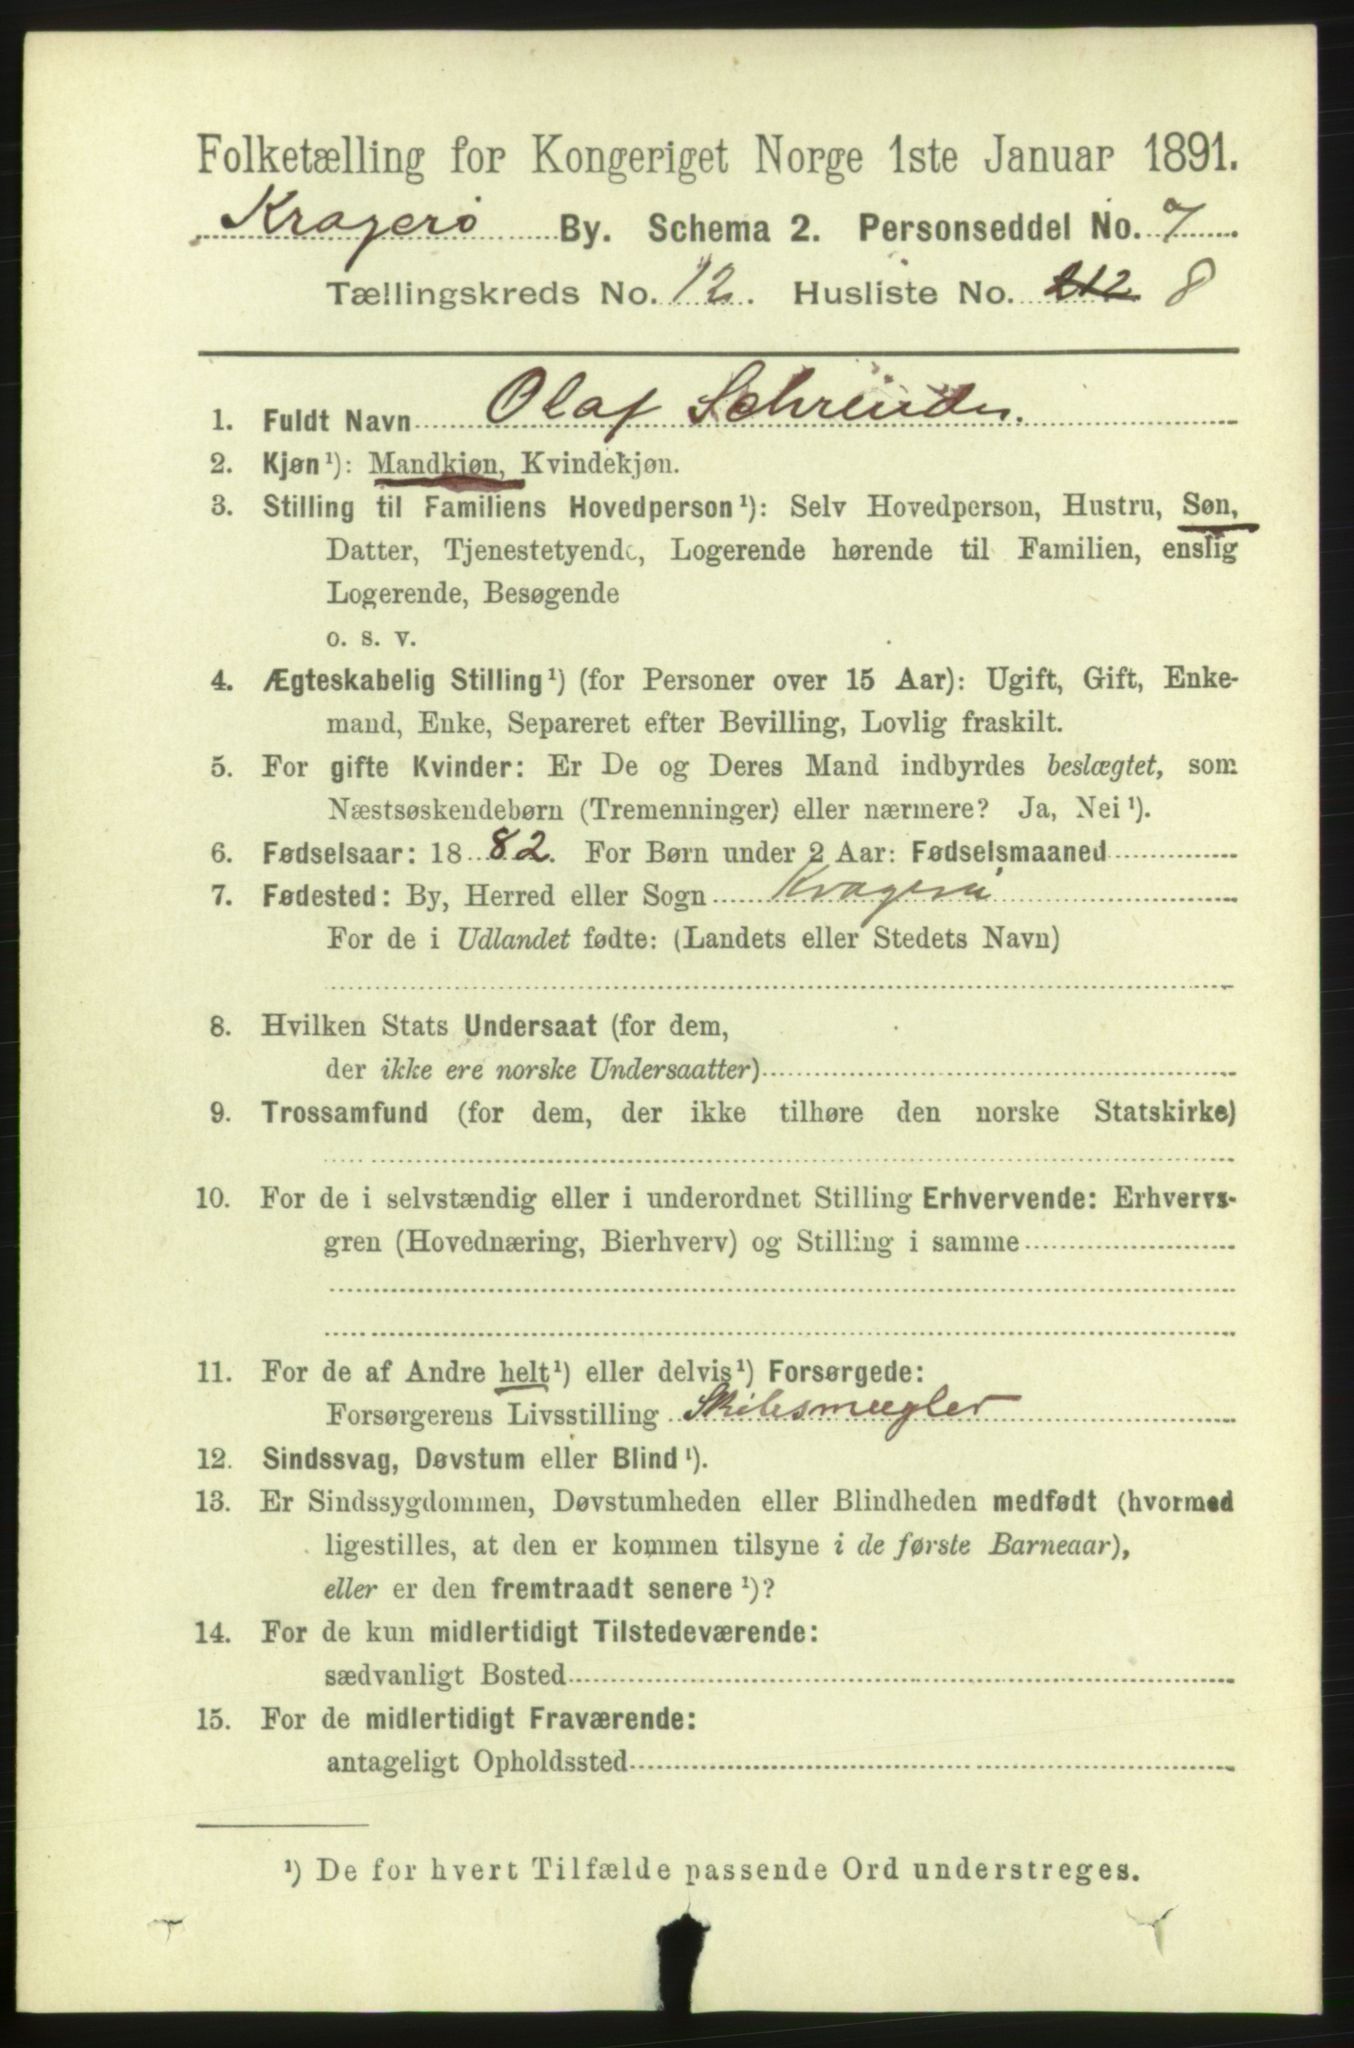 Folketælling for Kongeriget Norge 1ste Januar 1891.
Kragerö By. Schema 2. Personseddel No. 7
Tællingskreds No. 12. Husliste No. 212 8
1. Fuldt Navn Olaf Schreuder.
2. Kjøn¹): Mandkjøn, Kvindekjøn.
3. Stilling til Familiens Hovedperson¹): Selv Hovedperson, Hustru, Søn,
Datter, Tjenestetyende, Logerende hørende til Familien, enslig
Logerende, Besøgende
o. s. v.
4. Ægteskabelig Stilling¹) (for Personer over 15 Aar): Ugift, Gift, Enke-
mand, Enke, Separeret efter Bevilling, Lovlig fraskilt.
5. For gifte Kvinder: Er De og Deres Mand indbyrdes beslægtet, som
Næstsøskendebørn (Tremenninger) eller nærmere? Ja, Nei¹).
6. Fødselsaar: 1882. For Børn under 2 Aar: Fødselsmaaned
7. Fødested: By, Herred eller Sogn Kragerö
For de i Udlandet fødte: (Landets eller Stedets Navn)
8. Hvilken Stats Undersaat (for dem,
der ikke ere norske Undersaatter)
9. Trossamfund (for dem, der ikke tilhøre den norske Statskirke)
10. For de i selvstændig eller i underordnet Stilling Erhvervende: Erhvervs-
gren (Hovednæring, Bierhverv) og Stilling i samme
11. For de af Andre helt¹) eller delvis¹) Forsørgede:
Forsørgerens Livsstilling Skibsmægler
12. Sindssvag, Døvstum eller Blind¹).
13. Er Sindssygdommen, Døvstumheden eller Blindheden medfødt (hvormed
ligestilles, at den er kommen tilsyne i de første Barneaar),
eller er den fremtraadt senere¹)?
14. For de kun midlertidigt Tilstedeværende:
sædvanligt Bosted
15. For de midlertidigt Fraværende:
antageligt Opholdssted
¹) De for hvert Tilfælde passende Ord understreges.